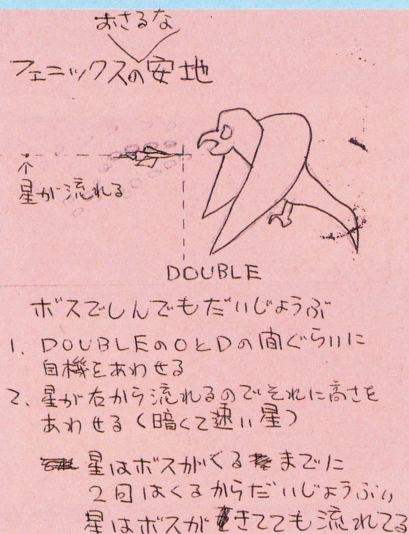 おさるな
フェニックスの安地
星が流れる
DOUBLE
ボスでしんでもだいじょうぶ
1. DOUBLEのOとDの間ぐらいに
自機をあわせる
2. 星が右から流れるのでそれに高さを
あわせる(暗くて速い星)
星はボスがくるまでに
2回はくるからだいじょうぶ
星はボスがきてても流れてる